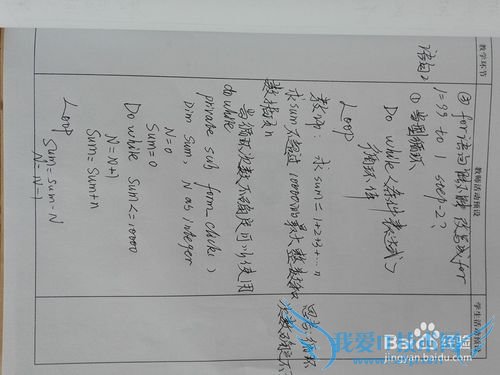 教学环节
教师活动预设
学生活动预设
语句。
② for语句
for
i=99 to 1 step-2?
① 当型循环
Do while <条件表达式>
循环体
Loop
教师: 求sum=1+2+3+…n
求sum不超过10000的最大整数
数据及n
当循环次数不确定可以使用
do while
private sub form_click()
Dim Sum, N as integer
N=0
Sum=0
Do while Sum<=10000
N=N+1
Sum=Sum+n
Loop
Sum=Sum-N
N=N-1
思考:循环
次数
Baidu经验
jingyan.baidu.com